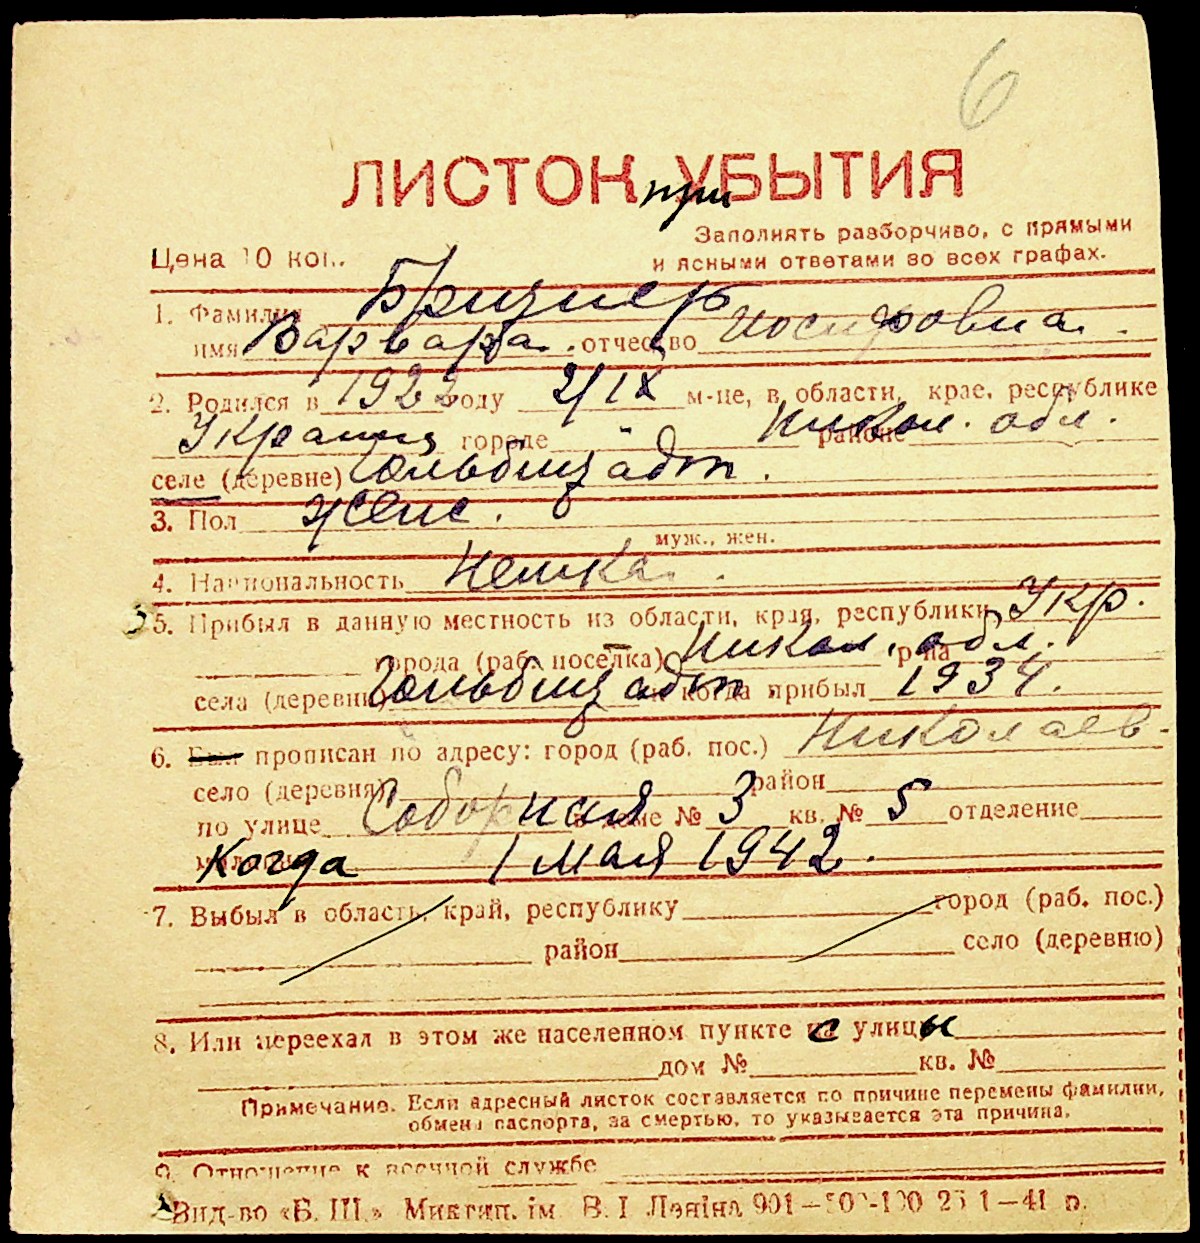 6
ЛИСТОК при УБЫТИЯ
Заполнять разборчиво, с прямыми
Цена 10 коп.
и ясными ответами во всех графах.
1. Фамилия Бризнер
имя Варвара. отчество Иосифовна.
2. Родился в 1922 году 2/IX м-це, в области, крае, республике
Украина городе " районе Никол. обл.
селе (деревне) Гольбштадт.
3. Пол женс.
муж., жен.
4. Национальность Немка.
5. Прибыл в данную местность из области, края, республики Укр.
города (раб. поселка) Никол. обл. р-на
села (деревни) Гольбштадт и когда прибыл 1934.
6. Был прописан по адресу: город (раб. пос.) Николаев.
село (деревня) район
по улице Соборная в доме № 3 кв. № 5 отделение
милиции Когда 1 мая 1942.
7. Выбыл в область, край, республику город (раб. пос.)
район село (деревню)
8. Или переехал в этом же населенном пункте с улицы
дом № кв. №
Примечание. Если адресный листок составляется по причине перемены фамилии,
обмена паспорта, за смертью, то указывается эта причина.
9. Отношение к военной службе
Вид-во «Б. Ш.» Миктип. ім. В. І. Леніна 901— 1—41 р.